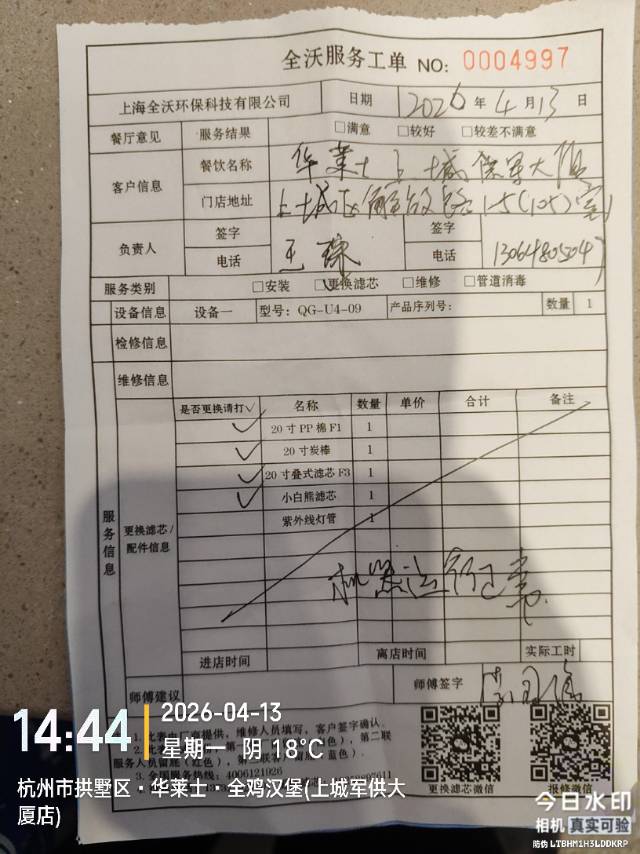 全沃服务工单 NO: 0004997
上海全沃环保科技有限公司 日期 2026年4月13日
餐厅意见 服务结果 □满意 □较好 □较差不满意
客户信息 餐饮名称 华莱士上城军大厦
门店地址 上城区解放路15(105)室
负责人 签字 王 签字
电话 电话 13064805047
服务类别 □安装 □更换滤芯 □维修 □管道消毒
设备信息 设备一 型号: QG-U4-09 产品序列号: 数量 1
检修信息
维修信息
服务信息
更换滤芯/配件信息
是否更换请打✓ 名称 数量 单价 合计 备注
✓ 20寸PP棉F1 1
✓ 20寸炭棒 1
✓ 20寸叠式滤芯F3 1
✓ 小白熊滤芯 1
紫外线灯管 1
机器运行正常
进店时间 离店时间 实际工时
师傅建议 师傅签字
维修人员填写，客户签字确认。
第二联
服务人员留底（红色），
蓝色）。
3.全国服务热线: 4006121926
更换滤芯微信 报修微信
14:44 2026-04-13
星期一 阴 18℃
杭州市拱墅区·华莱士·全鸡汉堡(上城军供大
厦店)
今日水印
相机 真实可验
防伪 LTBHM1H3LDDKRP